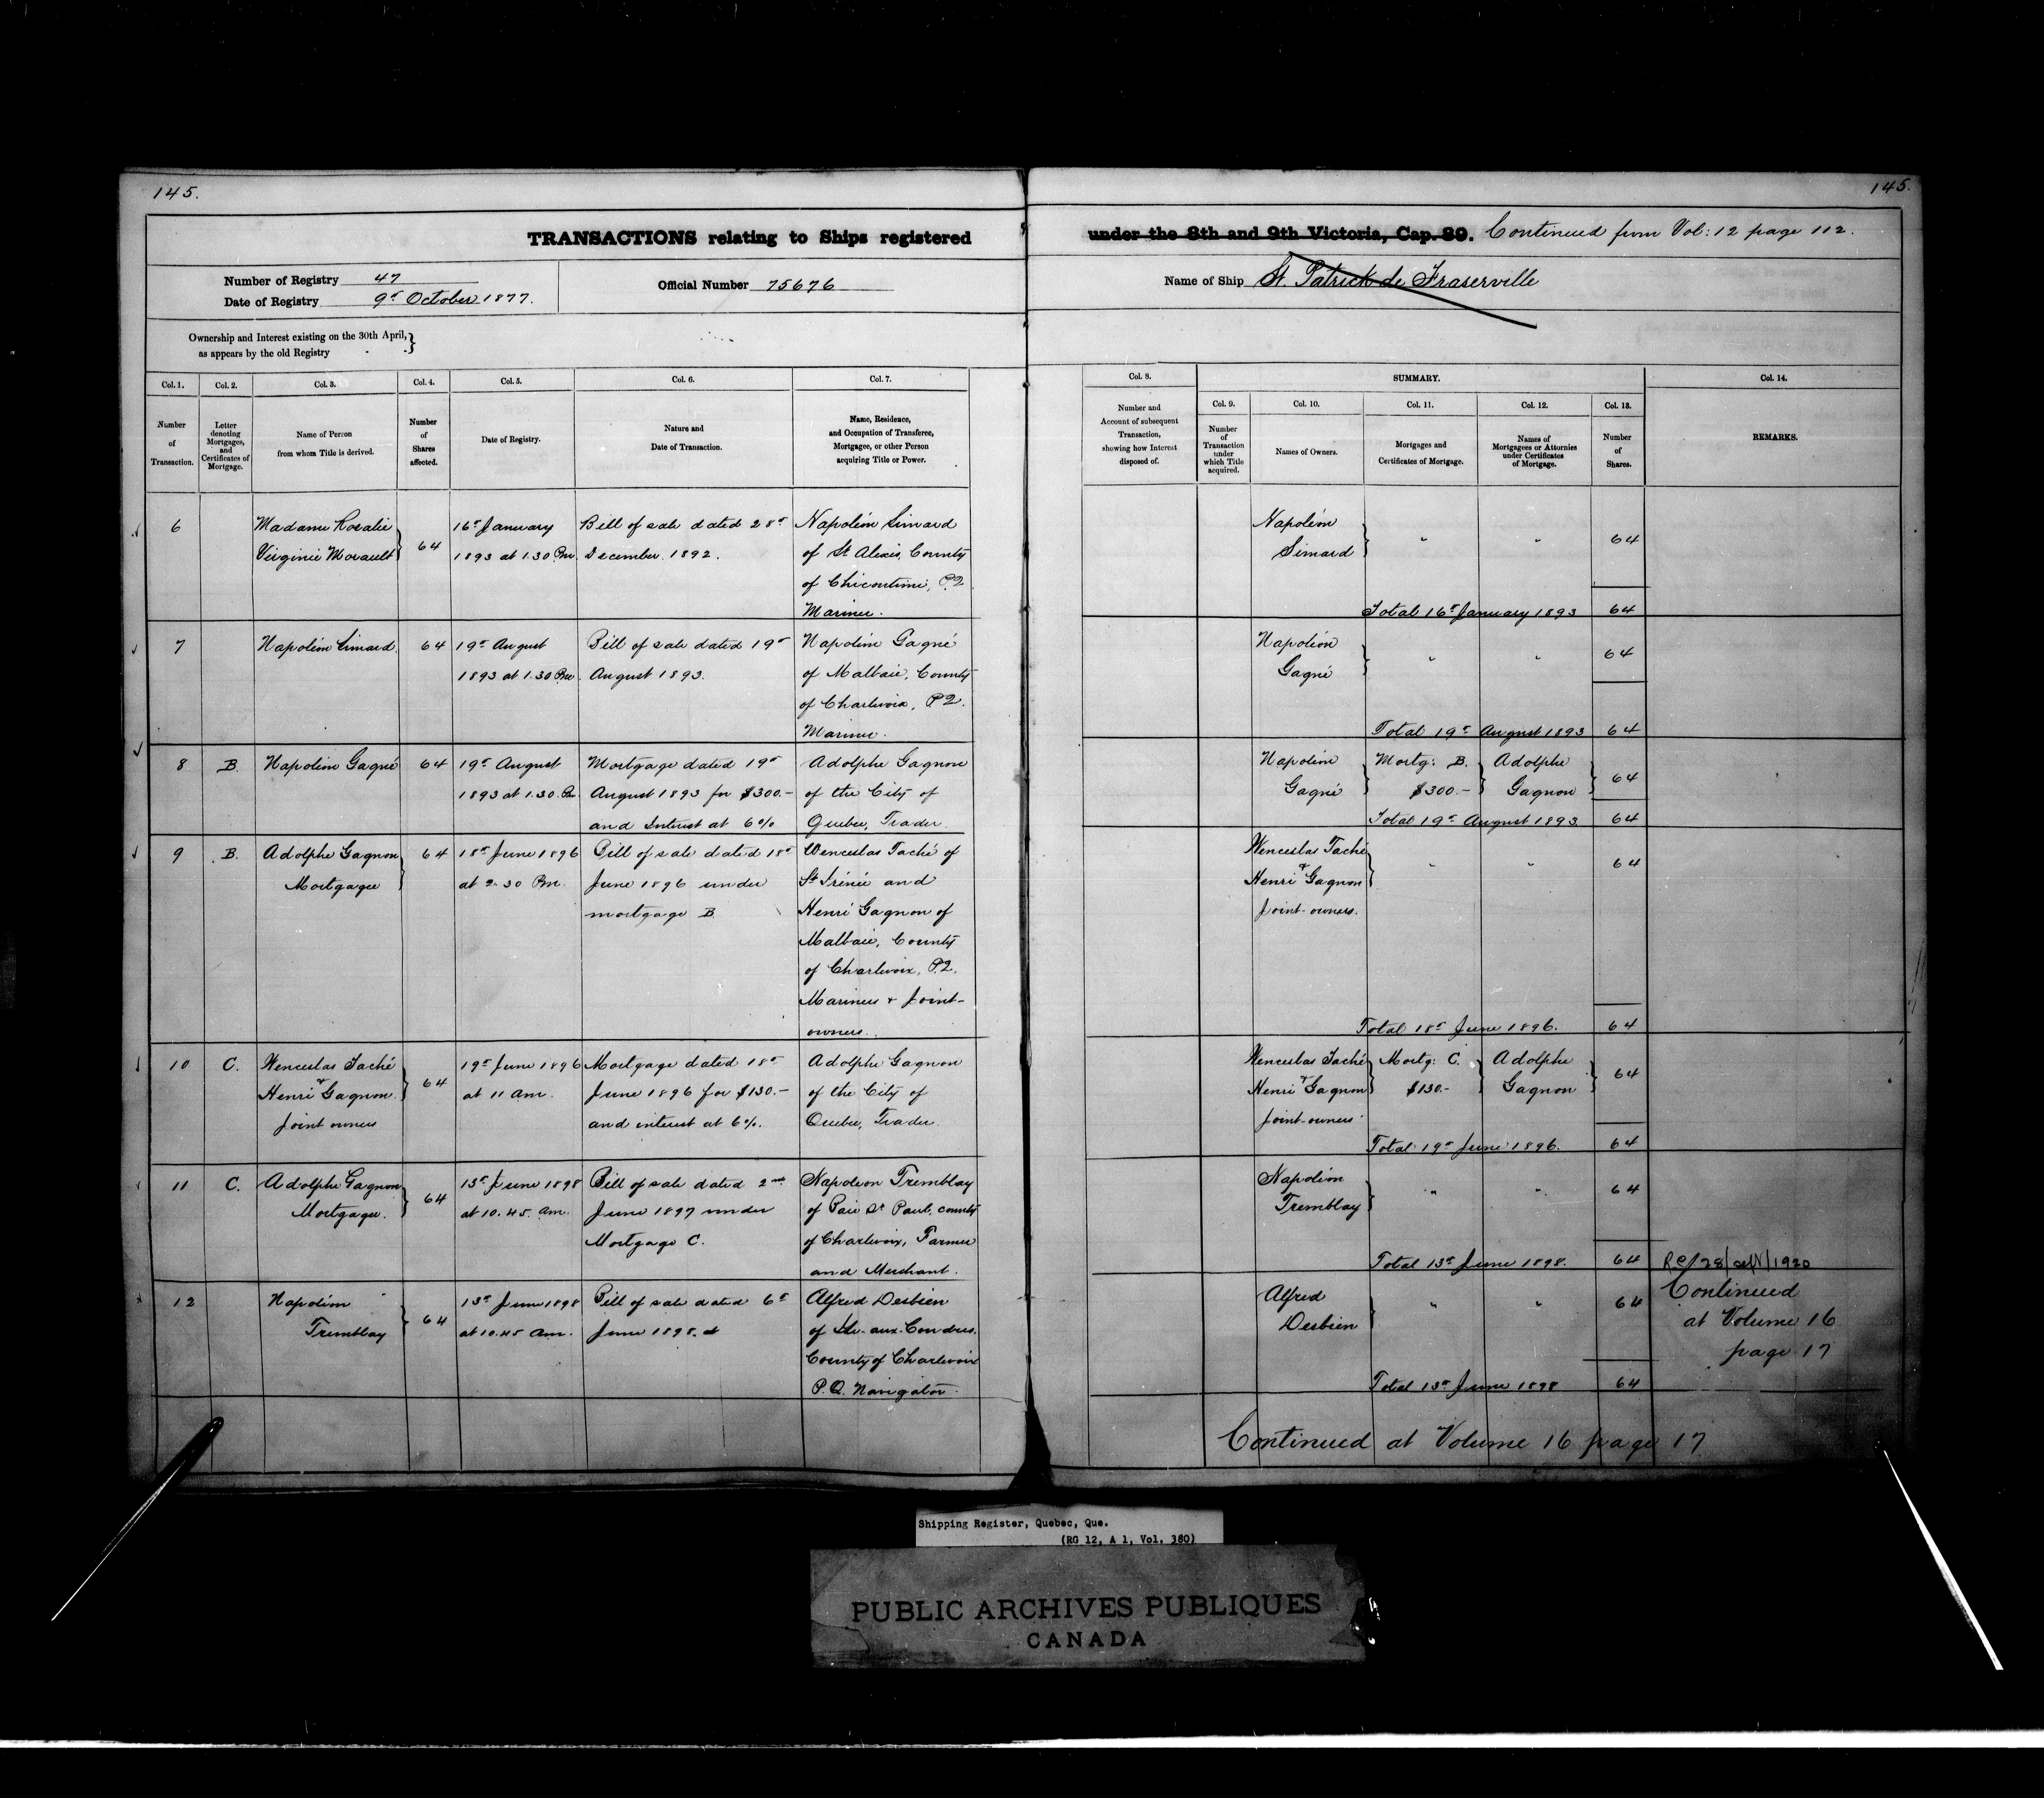 145.
145.
TRANSACTIONS relating to Ships registered
under the 8th and 9th Victoria, Cap. 89. Continued from Vol: 12 page 112.
Number of Registry 47
Date of Registry 9th October 1877.
Official Number 75676
Name of Ship St. Patrick de Fraserville
Ownership and Interest existing on the 30th April,
as appears by the old Registry
Col. 1.
Number
of
Transaction.
Col. 2.
Letter
denoting
Mortgages,
and
Certificates of
Mortgage.
Col. 3.
Name of Person
from whom Title is derived.
Col. 4.
Number
of
Shares
affected.
Col. 5.
Date of Registry.
Col. 6.
Nature and
Date of Transaction.
Col. 7.
Name, Residence,
and Occupation of Transferee,
Mortgagee, or other Person
acquiring Title or Power.
Col. 8.
Number and
Account of subsequent
Transaction,
showing how Interest
disposed of.
SUMMARY.
Col. 9.
Number
of
Transaction
under
which Title
acquired.
Col. 10.
Names of Owners.
Col. 11.
Mortgages and
Certificates of Mortgage.
Col. 12.
Names of
Mortgagees or Attornies
under Certificates
of Mortgage.
Col. 13.
Number
of
Shares.
Col. 14.
REMARKS.
6
Madame Rosalie
Virginie Morault
64
16th January
1893 at 1.30 Pm.
Bill of sale dated 28th
December 1892.
Napoléon Simard
of St Alexis, County
of Chicoutimi, P.Q.
Mariner.
Napoléon
Simard
" "
64
Total 16th January 1893 64
7
Napoléon Simard.
64
19th August
1893 at 1.30 Pm.
Bill of sale dated 19th
August 1893.
Napoléon Gagné
of Malbaie, County
of Charlevoix, P.Q.
Mariner.
Napoléon
Gagné
" "
64
Total 19th August 1893 64
8
B.
Napoléon Gagné
64
19th August
1893 at 1.30. Pm.
Mortgage dated 19th
August 1893 for $300.-
and Interest at 6%
Adolphe Gagnon
of the City of
Quebec, Trader.
Napoléon
Gagné
Mortg: B.
$300.-
Adolphe
Gagnon
64
Total 19th August 1893. 64
9
B.
Adolphe Gagnon
Mortgagee
64
18th June 1896
at 2.30 Pm.
Bill of sale dated 18th
June 1896 under
mortgage B
Wenceslas Taché of
St Irénée and
Henri Gagnon of
Malbaie, County
of Charlevoix, P.Q.
Mariners & Joint-
owners.
Wenceslas Taché
&
Henri Gagnon
Joint-owners.
" "
64
Total 18th June 1896. 64
10
C.
Wenceslas Taché
&
Henri Gagnon.
Joint owners
64
19th June 1896
at 11 am.
Mortgage dated 18th
June 1896 for $130.-
and interest at 6%.
Adolphe Gagnon
of the City of
Quebec, Trader.
Wenceslas Taché
&
Henri Gagnon
Joint-owners.
Mortg: C.
$130.-
Adolphe
Gagnon
64
Total 19th June 1896. 64
11
C.
Adolphe Gagnon
Mortgagee.
64
13th June 1898
at 10.45. am.
Bill of sale dated 2nd
June 1897 under
Mortgage C.
Napoleon Tremblay
of Baie St Paul, county
of Charlevoix, Farmer
and Merchant.
Napoléon
Tremblay
" "
64
Total 13th June 1898. 64
12
Napoléon
Tremblay
64
13th June 1898
at 10.45 am.
Bill of sale dated 6th
June 1898.
Alfred Desbien
of Ile-aux-Coudres.
County of Charlevoix
P.Q. Navigator.
Alfred
Desbien
" "
64
Total 13th June 1898 64
1920
Continued
at Volume 16
page 17
Continued at Volume 16 page 17
Shipping Register, Quebec, Que.
(RG 12, A 1, Vol. 380)
PUBLIC ARCHIVES PUBLIQUES
CANADA